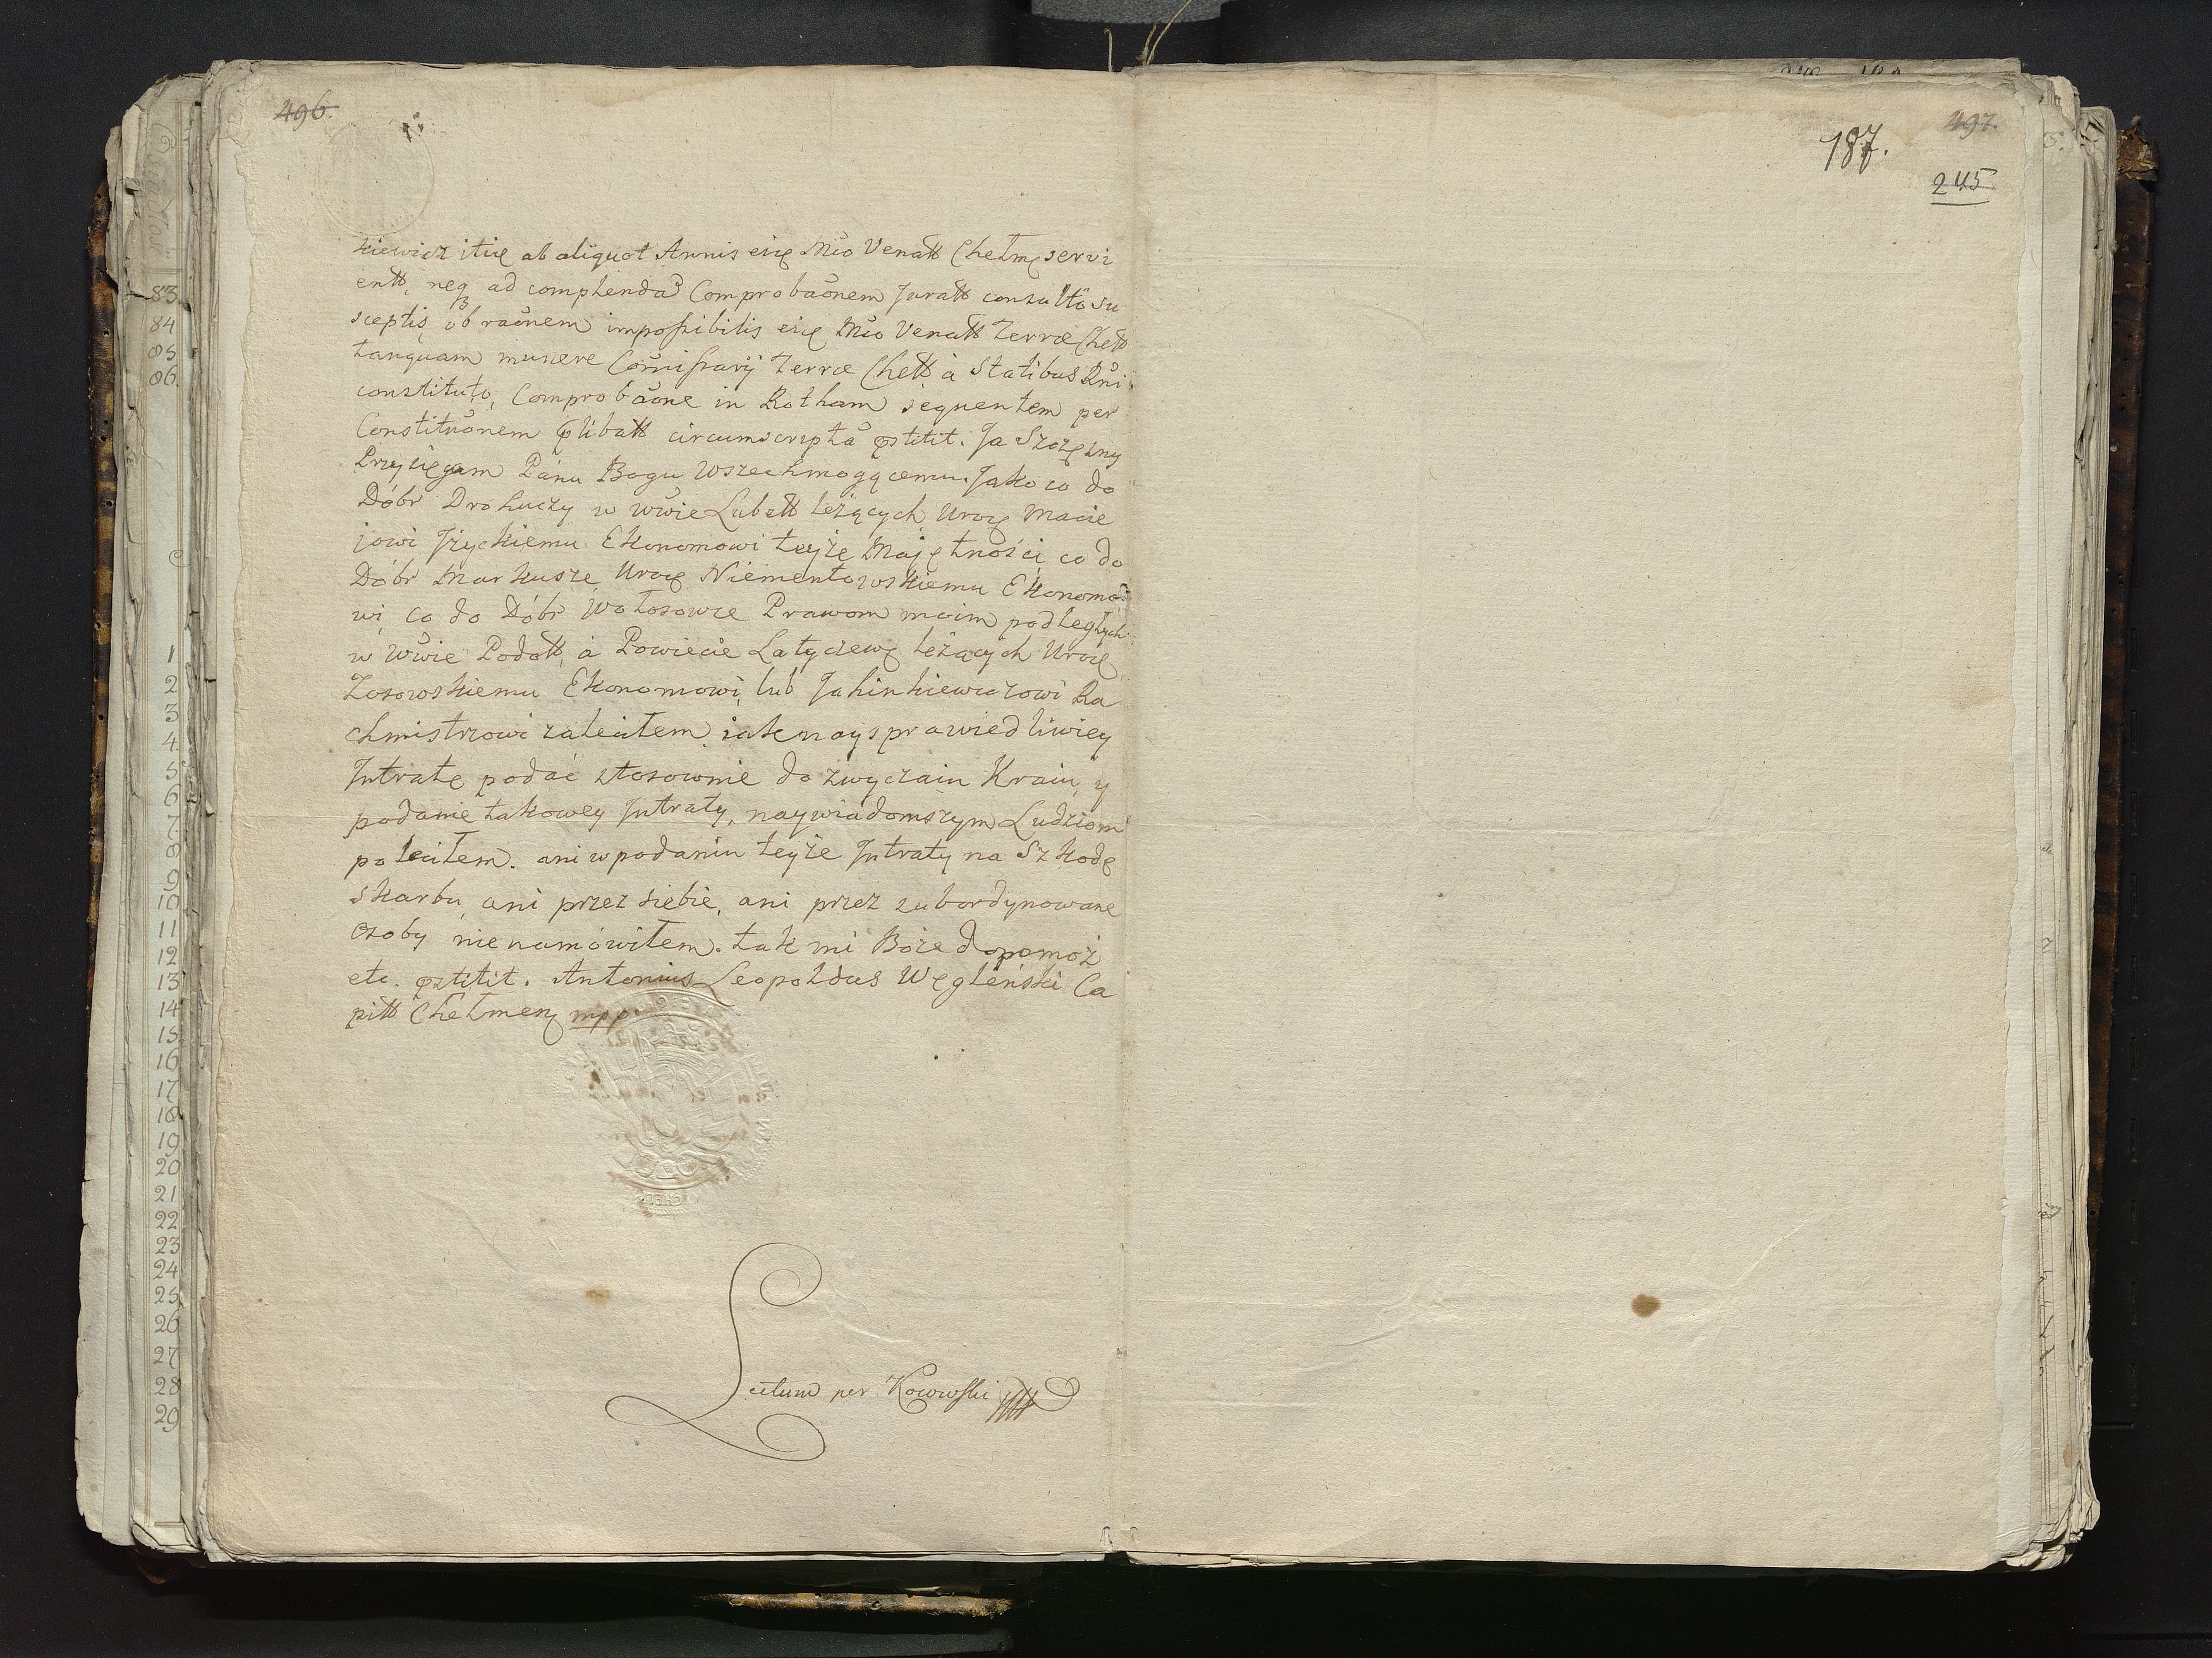 496.
kiewicz itię ab aliquot Annis eię Mĩo Venatt Chełmę servi
entt, neq₃ ad complenda Comprobaõnem Juratt consulto su
sceptis, ob raõnem impossibilis eię Mĩo Venatt Terræ Chełt
tanquam munere Comissarij Terræ Chełt à Statibus Rñi
constituto, Comprobaõne in Rotham sequentem per
Constituõnem libatt circumscripta stitit. Ja Szczęsny
Przysięgam Panu Bogu Wszechmogącemu. Jako co do
Dóbr Drohuczy w Wwie Lubett leżących, Uroę Macie
jowi Jżyckiemu Ekonomowi teyże Maiętności, co do
Dóbr Markusze, Uroę Niementowskiemu Ekonomo
wi, co do Dóbr Wołosowce Prawom moim podległych
w Wwie Podott, à Powiecie Latyczewę leżących Uroę
Zosowskiemu Ekonomowi, lub Jahinkiewiczowi Ra
chmistrzowi zaleciłem, iak nayspra wiedliwiey
Jntratę podać stosownie do zwyczaiu Kraiu, y
podanie takowey Jntraty, naywiadomszym Ludziom
poleciłem. ani w podaniu teyże Jntraty na Szkodę
skarbu, ani przez siebie, ani przez subordynowane
osoby nie namówiłem. tak mi Boże dopomoż
etc. stitit. Antonius Leopoldus Węgleński Ca
pitt Chełmenę mpp.
CHEŁM
Lectum per Kowowski
497.
187.
245
83
84
85
86
1
2
3
4
5
6
7
8
9
10
11
12
13
14
15
16
17
18
19
20
21
22
23
24
25
26
27
28
29